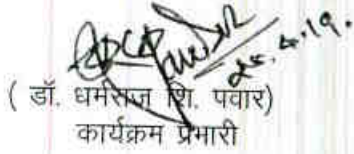 २९.४.१९.
( डॉ. धर्मराज शि. पवार)
कार्यक्रम प्रभारी